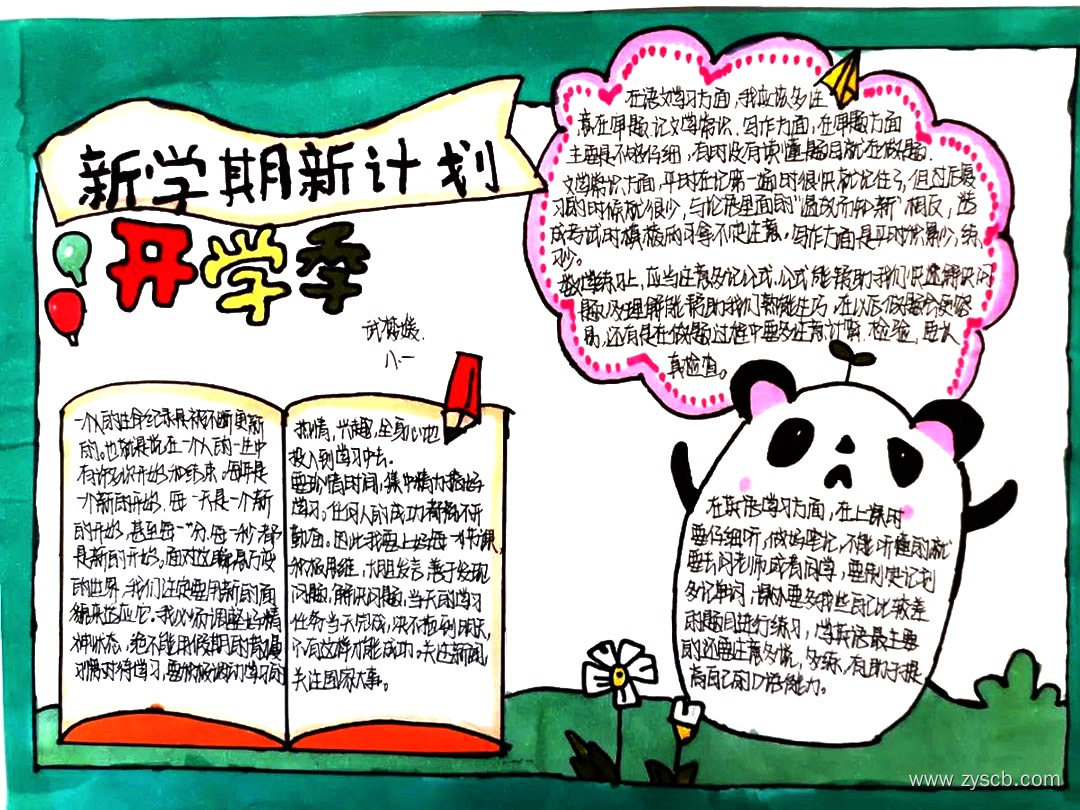 新学期新计划
开学季
八一
一个人的生命纪录是被不断更新
的。也就是说在一个人的一生中
有许多次开始和结束。每年是
一个新的开始，每一天是一个新
的开始，甚至每一分每一秒都
是新的开始。面对这瞬息万变
的世界，我们注定要用新的面
貌来适应它。我必须调整好精
神状态，绝不能用假期的散漫
习惯对待学习，要积极调动学习的
热情，兴趣，全身心地
投入到学习中去。
要珍惜时间，集中精力搞好
学习，任何人的成功都离不开
勤奋。因此我要上好每一节课，
积极思维，大胆发言，善于发现
问题，解决问题，当天的学习
任务当天完成，决不拖到明天，
只有这样才能成功。关注新闻，
关注国家大事。
在语文学习方面，我应该多注
意在早题，记文学常识、写作方面，在早题方面
主要是不够仔细，有时没有读懂题目就在做题。
文学常识方面，平时在记第一遍时很快就记住了，但过后复
习的时候就很少，与论语里面的“温故而知新”相反，造
成考试时模棱两可拿不定注意，写作方面是平时积累少，练
习少。
数学练习上，应当注意多记公式，公式能帮助我们快速解决问
题以及理解能帮助我们熟能生巧，在以后做题会更容
易，还有是在做题过程中要多注意计算、检验，要认
真检查。
在英语学习方面，在上课时
要仔细听，做好笔记，不能听懂的就
要去问老师或者同学，要制定计划
多记单词，课外要多找些自己比较差
的题目进行练习，学英语最主要
的还要注意多说，多练，有助于提
高自己的口语能力。
www.zyscb.com